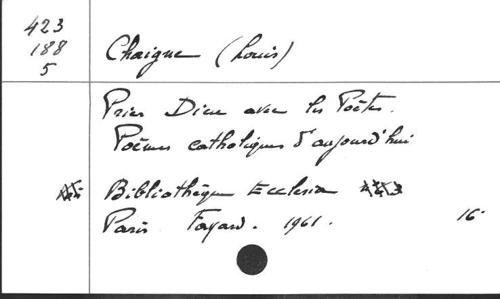 423
188
5
Chaigne (Louis)
Prier Dieu avec les Poètes.
Poèmes catholiques d'aujourd'hui
Bibliothèque Ecclesia
Paris Fayard. 1961. 16°